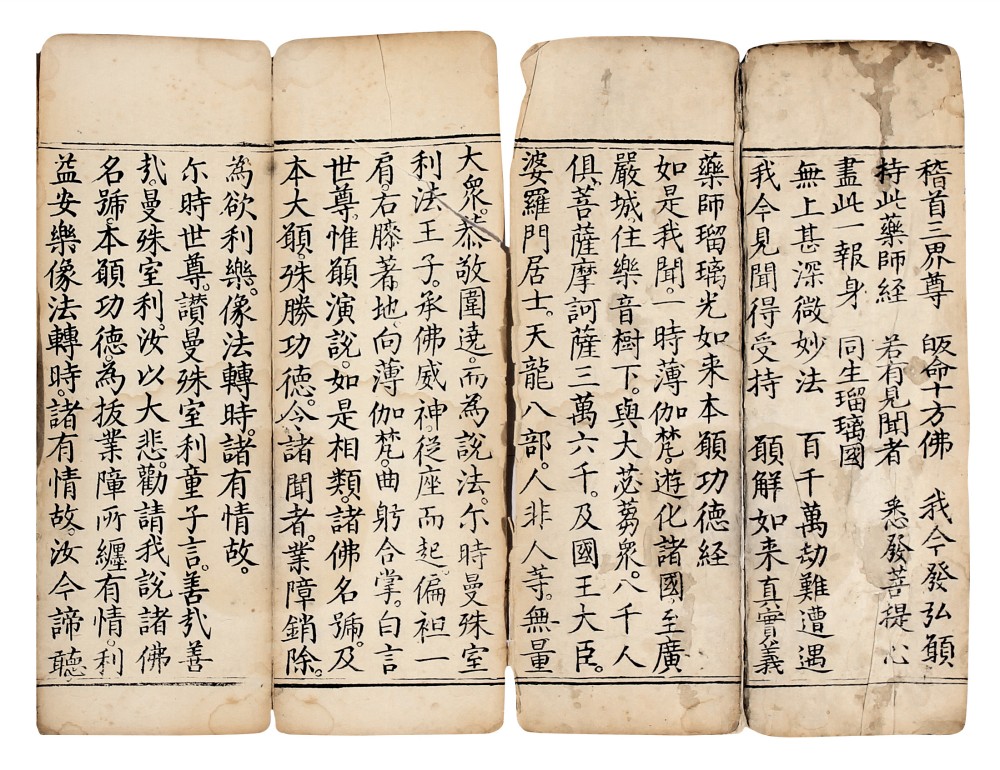 稽首三界尊 皈命十方佛 我今發弘願
持此藥師經 若有見聞者 悉發菩提心
盡此一報身 同生瑠璃國
無上甚深微妙法 百千萬劫難遭遇
我今見聞得受持 願解如来真實義
藥師瑠璃光如来本願功德經
如是我聞。一時薄伽梵。遊化諸國。至廣
嚴城住樂音樹下。與大苾蒭衆。八千人
俱。菩薩摩訶薩三萬六千。及國王大臣。
婆羅門居士。天龍八部。人非人等。無量
大衆。恭敬圍遶。而為說法。尒時曼殊室
利法王子。承佛威神。從座而起。偏袒一
肩。右膝著地。向薄伽梵。曲躬合掌。白言
世尊。惟願演說。如是相類。諸佛名號。及
本大願。殊勝功德。令諸聞者。業障銷除。
為欲利樂。像法轉時。諸有情故。
尒時世尊。讃曼殊室利童子言。善㢤善
㢤。曼殊室利。汝以大悲。勸請我說諸佛
名號。本願功德。為拔業障所纏有情。利
益安樂像法轉時。諸有情故。汝今諦聽